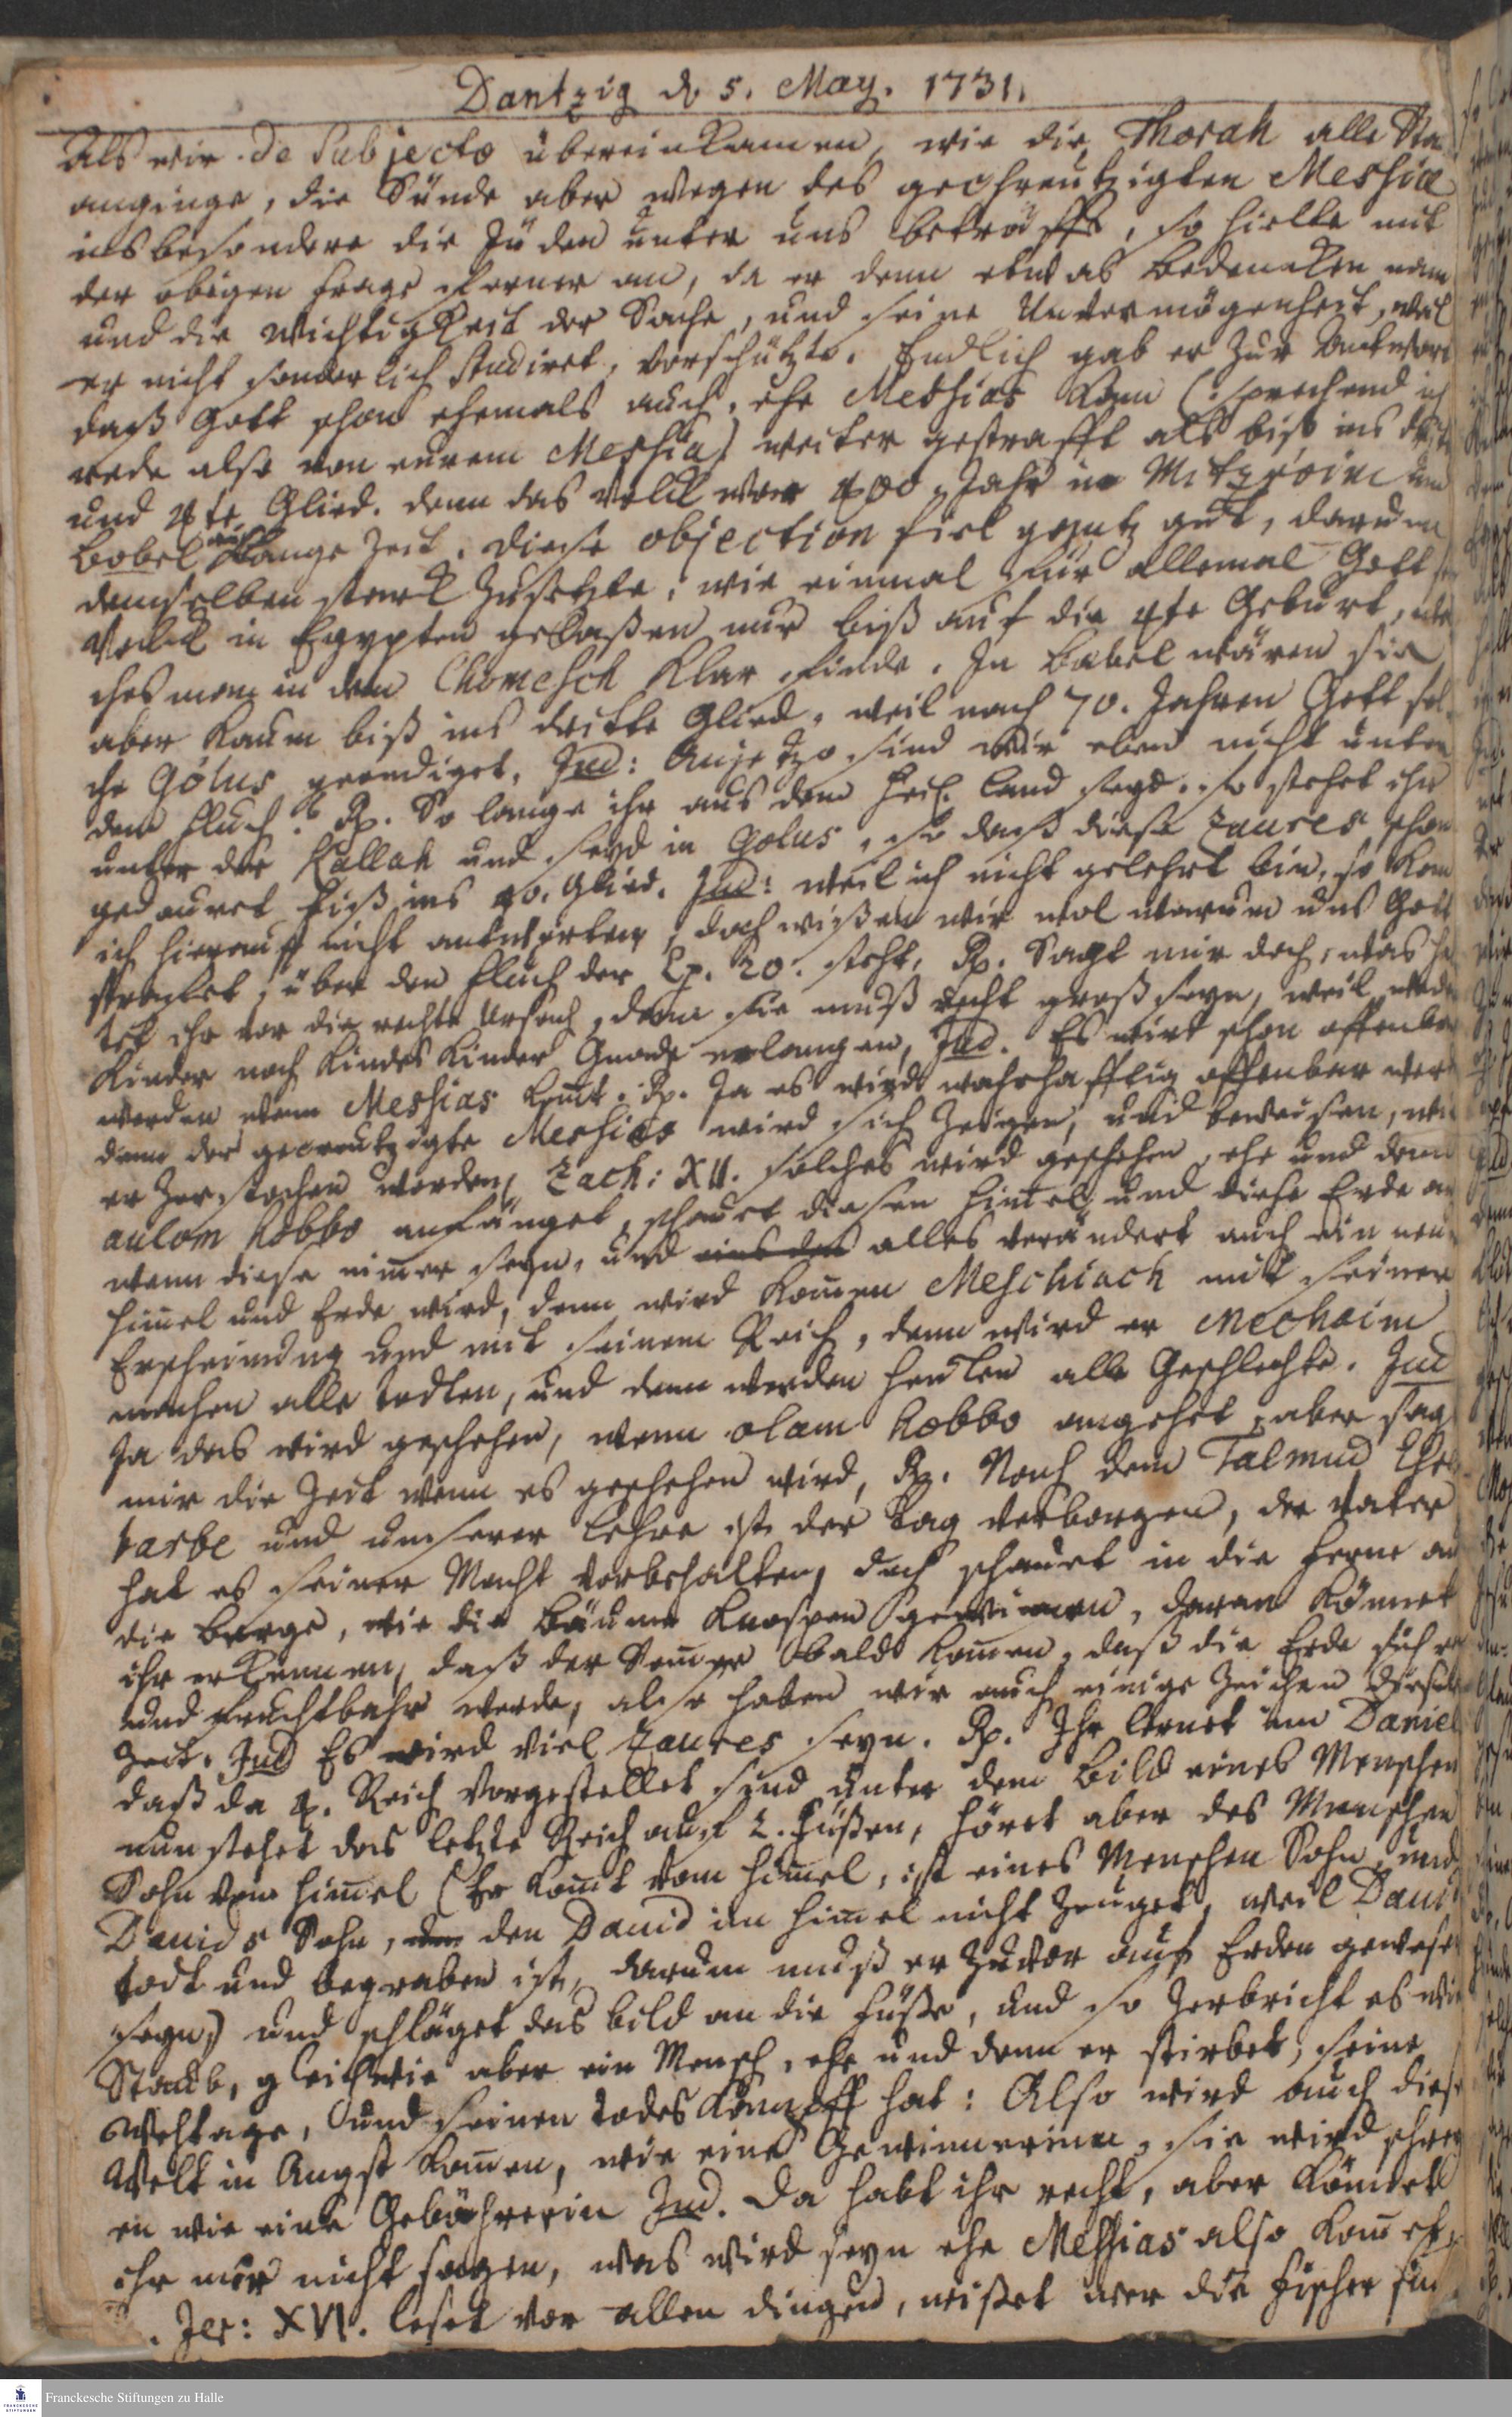 Dantzig d. 5. May. 1731.
Als wir de Subjecto übereinkamen, wie die Thorah alle
anginge, die Sünde aber wegen des gechreutzigten Messiae
insbesondere die Jüden unter uns beträffe, so hielte mit
der obigen Frage ferner an, da er denn etwas Bedencken nam
und die Wichtigkeit der Sache, und seine Unvermögenheit, weil
er nicht sonderlich studiret, vorschützte. Endlich gab er zur Antwort
daß Gott schon ehemals auch, ehe Messias kam (: sprechend ich
rede also von eurem Messia) weiter gestrafft als biß ins dritte
und 4te Glied. denn das Volck war 400 Jahr in Mitzraim und
Babel auch lange Zeit. Diese objection fiel gantz gut, darum
demselben starck zusetzte, wie einmal für allemal Gott sein
Volck in Egypten gelaßen nur biß auf die 4te Geburt, wel
ches man in dem Chomesch klar finde. In Babel wären sie
aber kaum biß ins dritte Glied, weil nach 70. Jahren Gott sol-
che Golus geendiget. Jud: Anjetzo sind wir eben nicht unter
dem Fluch? Rp. So lange ihr aus dem heil. Land seyd, so stehet ihr
unter der Kallah und seyd in Golus, so daß diese Zaures schon
gedauret biß ins 40. Glied. Jud: weil ich nicht gelehrt bin, so kan
ich hierauff nicht antworten, doch wißen wir wol warum uns Gott
strafet, über den Fluch der Cp. 20. steht, Rp. Sagt mir doch, was hal
tet ihr vor die rechte Ursach, denn sie muß recht groß seyn, weil weder
Kinder noch Kindes Kinder Gnade erlangen, Jud. Es wird schon offenbar
werden wenn Messias komt. Rp. Ja es wird wahrhafftig offenbar werden
denn der gecreutzigte Messias wird sich zeigen, und beweisen, wie
er zerstochen worden, Zach: XII. solches wird geschehen, ehe und denn
aulom habbo anfänget, schauet diesen Himel und diese Erde an
wenn diese nimer seyn, und alles verändert auch ein neuer
Himel und Erde wird, denn wird komen Meschiach mit seiner
Erscheinung und mit seinem Reich, denn wird er Mechaim
machen alle Todten, und denn werden heulen alle Geschlechte. Jud
Ja das wird geschehen, wenn olam habbo angehet, aber sagt
mir die Zeit wenn es geschehen wird, Rp. Nach dem Talmud
und unserer Lehre ist der Tag verborgen, der Vater
hat es seiner Macht vorbehalten, doch schauet in die Ferne auf
die Berge, wie die Bäume Knospen gewinnen, daran könnet
ihr erkennen, daß der Somer bald komen, daß die Erde sich
und fruchtbahr werde, also haben wir auch einige Zeichen dieser
Zeit. Jud Es wird viel Zaures seyn. Rp. Ihr lernet im Daniel
daß da 4. Reich vorgestellet sind unter dem Bild eines Menschen
nun stehet das letzte Reich auf 2. Füßen, höret aber des Menschen
Sohn vom Himel (Er komt vom Himel, ist eines Menschen Sohn und
Davids Sohn, den David im Himel nicht zeuget, weil David
todt und begraben ist, darum muß er zuvor auf Erden gewesen
seyn,) und schläget das Bild an die Füße, und so zerbricht es wie
Staub, gleichwie aber ein Mensch, ehe und denn er stirbet, seine
Wehtage, und seinen Todes Kampff hat: Also wird auch diese
Welt in Angst komen, wie eine Gewinnerinn, sie wird schrey
en wie eine Gebährerin Jud. Da habt ihr recht, aber könnet
ihr mir nicht sagen, was wird seyn ehe Messias also komet,
Jer: XVI. leset vor allen Dingen, wißet wer die Fischer sind
Franckesche Stiftungen zu Halle